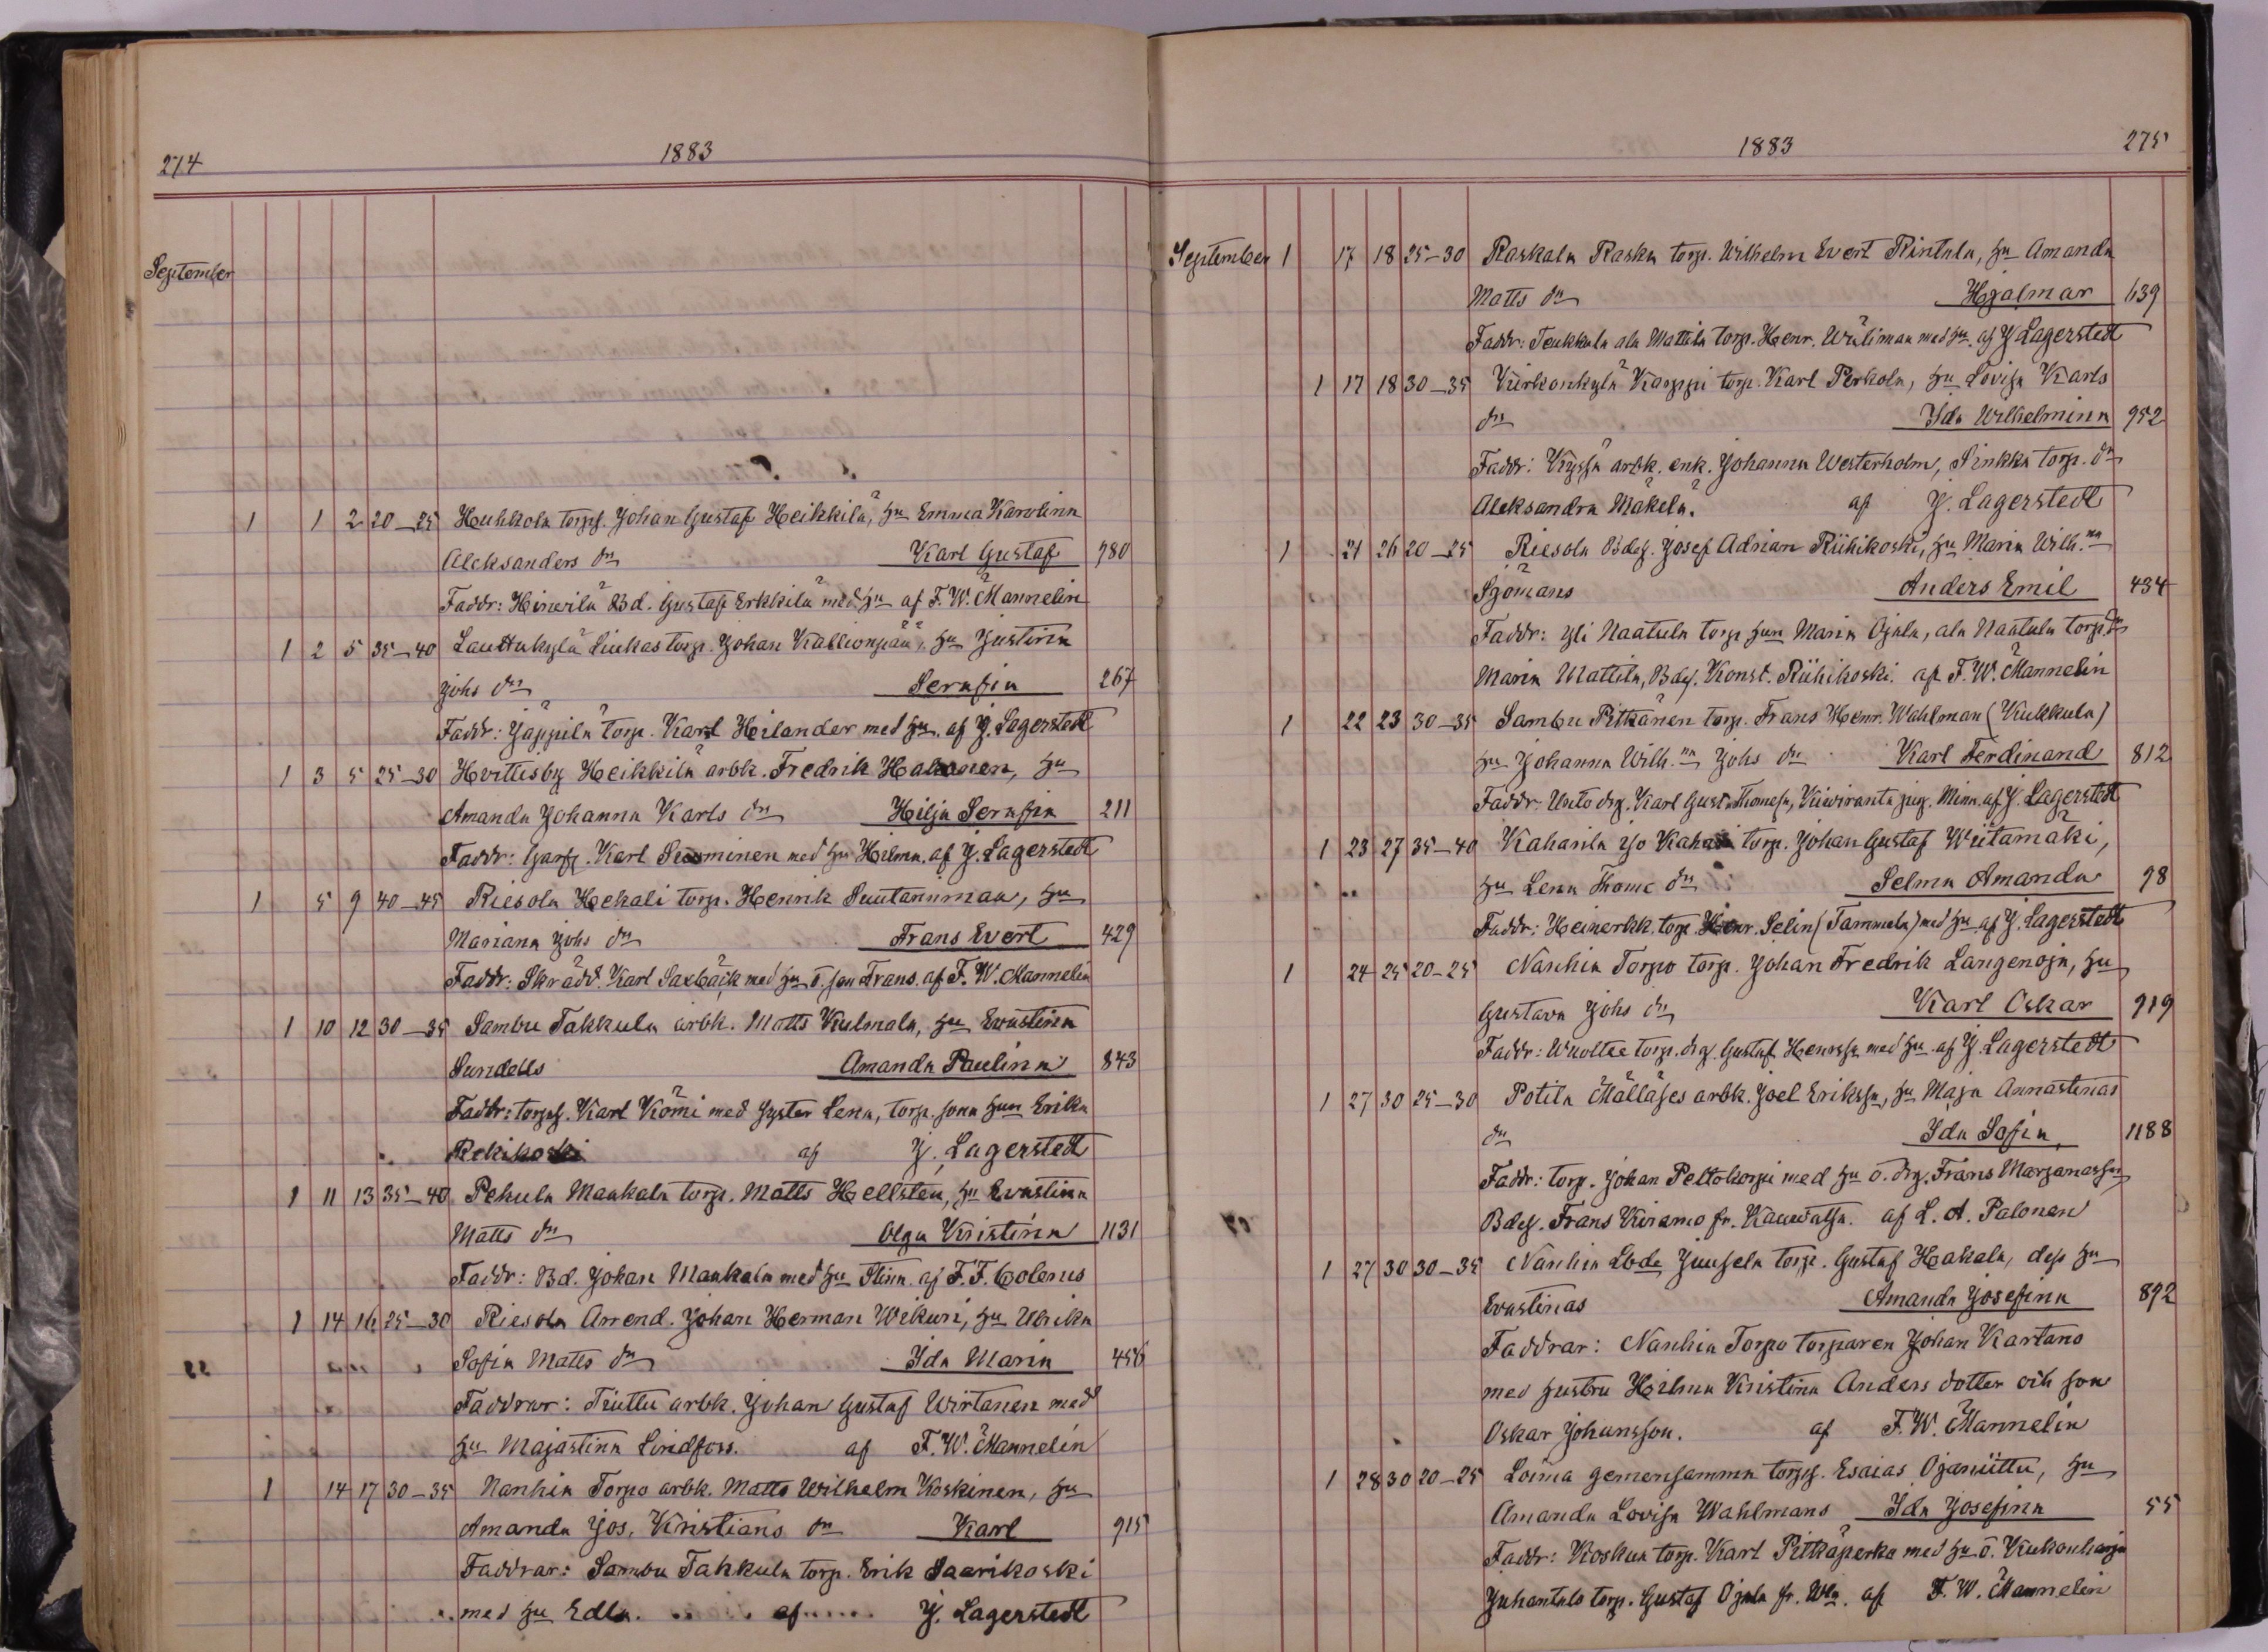 274 1883
September
1 1 2 20-25 Huhkola torpf. Johan Gustaf Heikkilä, hu Emma Karolina
Aleksanders dr Karl Gustaf 980
Faddr: Heinilä Bd. Gustaf Erkkilä med hu af F. W. Mannelin
1 2 5 35-40 Lauttukylä Liukas torp. Johan Kallionpää, hu Justina
Johs dr Serafia 267
Faddr: Jäppilä torp. Karl Heilander med hu. af J. Lagerstedt
1 3 5 25-30 Hvittisby Heikkilä arbk. Fredrik Halonen, hu
Amanda Johanna Karls dr Hilja Serafia 211
Faddr: Garf. Karl Suominen med hu Hilma. af J. Lagerstedt
1 5 9 40-45 Riesola Hekali torp. Henrik Suutarinmaa, hu
Mariana Johs dr Frans Evert 429
Faddr: Skrädd. Karl Saxbäck med hu o. son Frans. af F. W. Mannelin
1 10 12 30-35 Sambu Takkula arbk. Matts Kulmala, hu Evastina
Sundells Amanda Paulina 843
Faddr: torpf. Karl Kömi med syster Lena, torp. sona hun Erika
Rekikoski af J. Lagerstedt
1 11 13 35-40 Pehula Maukala torp. Matts Hellsten, hu Evastina
Matts dr Olga Kristina 1131
Faddr: Bd. Johan Maukala med hu Stina. af F. F. Colerus
1 14 16 25-30 Riesola Arrend. Johan Herman Wekuri, hu Ulrika
Sofia Matts dr Ida Maria 456
Faddrar: Tiuttu arbk. Johan Gustaf Wirtanen med
hu Majastina Lindfors. af F. W. Mannelin
1 14 17 30-35 Nanhia Torpo arbk. Matts Wilhelm Koskinen, hu
Amanda Jos. Kristians dr Karl 915
Faddrar: Sambu Takkula torp. Erik Saarikoski
med hu Edla. af J. Lagerstedt
1883 275
September 1 17 18 25-30 Raskala Rasku torp. Wilhelm Evert Rintala, hu Amanda
Matts dr Hjalmar 639
Faddr: Teukkula ala Mattila torp. Henr. Wälimaa med hu. af J. Lagerstedt
1 17 18 30-35 Kiirkonkylä Karppi torp. Karl Perkola, hu Lovisa Karls
dr Ida Wilhelmina 952
Faddr: Kyssä arbk. enk. Johanna Westerholm, Sinkka torp. dr
Aleksandra Mäkelä. af J. Lagerstedt
1 21 26 20-25 Riesola Bdes. Josef Adrian Riihikoski, hu Maria Wilh.na
Sjömans Anders Emil 434
Faddr: Yli Naatula torp hun Maria Ojala, ala Naatula torp. dr
Maria Mattila, Bdes. Konst. Riihikoski. af F. W. Mannelin
1 22 23 30-35 Sambu Pitkänen torp. Frans Henr. Wahlman (Kukkula)
hu Johanna Wilh.na Johs dr Karl Ferdinand 812
Faddr: Unto drg. Karl Gust. Thomesn, Kiviranta pig. Mina. af J. Lagerstedt
1 23 27 35-40 Kaharila Jo Kahari torp. Johan Gustaf Wiitamäki,
hu Lena Thome dr Selma Amanda 98
Faddr: Heinerkk. torp. Henr. Selin (Tammela) med hu af J. Lagerstedt
1 24 25 20-25 Nanhia Torpo torp. Johan Fredrik Langenoja, hu
Gustava Johs dr Karl Oskar 919
Faddr: Wuoltee torp. drg. Gustaf Henrssn med hu. af J. Lagerstedt
1 27 30 25-30 Potila Mälläses arbk. Joel Erikssn, hu Maja Annastinas
dr Ida Sofia 1188
Faddr: torp. Johan Peltokorpi med hu o. drg. Frans Marjanassn
Bdes. Frans Kiramo fr. Kauvatsa. af L. A. Palonen
1 27 30 30-35 Nanhia Lbde Juusela torp. Gustaf Hakala, dess hu
Evastinas Amanda Josefina 892
Faddrar: Nanhia Torpo torparen Johan Kartano
med hustru Hilma Kristina Anders dotter och son
Oskar Johansson. af F. W. Mannelin
1 28 30 20-25 Loima gemensamma torpf. Esaias Ojaniittu, hu
Amanda Lovisa Wahlmans Ida Josefina 55
Faddr: Koskua torp. Karl Pitkäperka med hu o. Kukonharja
Juhantalo torp. Gustaf Ojala fr. Wla. af F. W. Mannelin